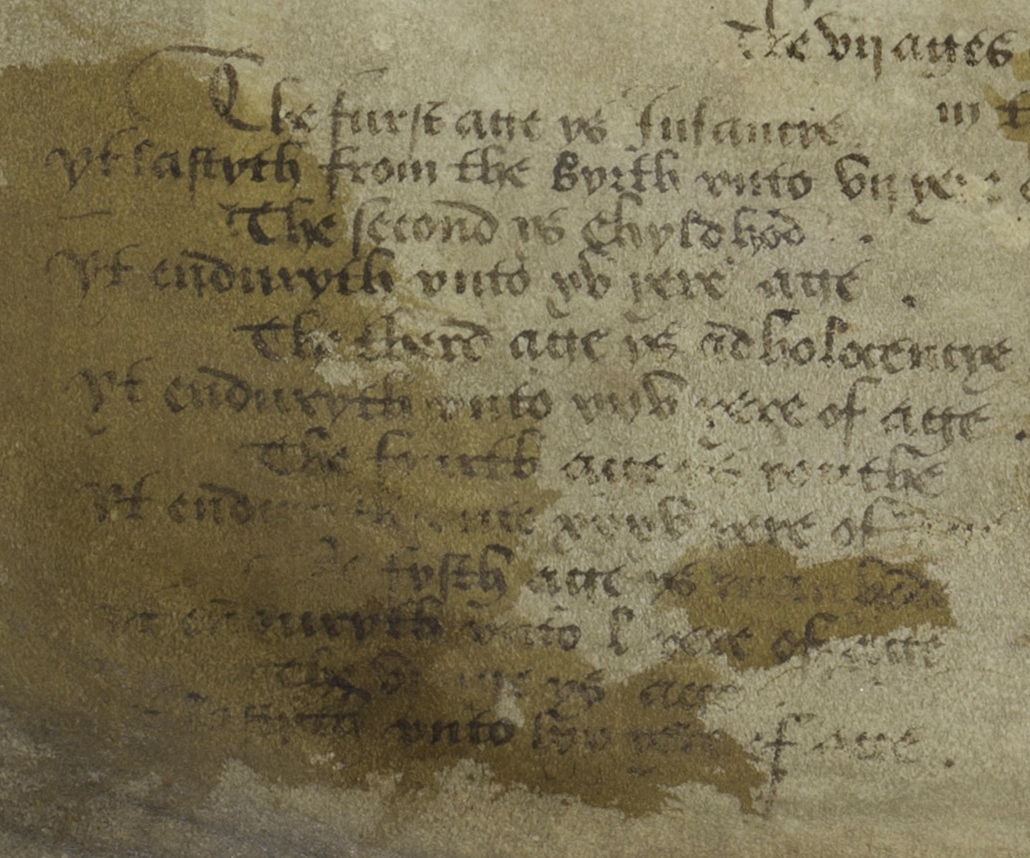 The vij ages
in
The furst age ys Infancye
yt lastyth from the byrth vnto vij yere
The second ys Chyldhod
yt enduryth vnto xv yere age
The therd age ys adholocencye
yt enduryth vnto xxv yere of age
The fourth age ys youthe
yt vnto xxxv yere of
fyfth age ys man hod
yt enduryth vnto l yere of age
The ys age
lastyth vnto lxv yere of age